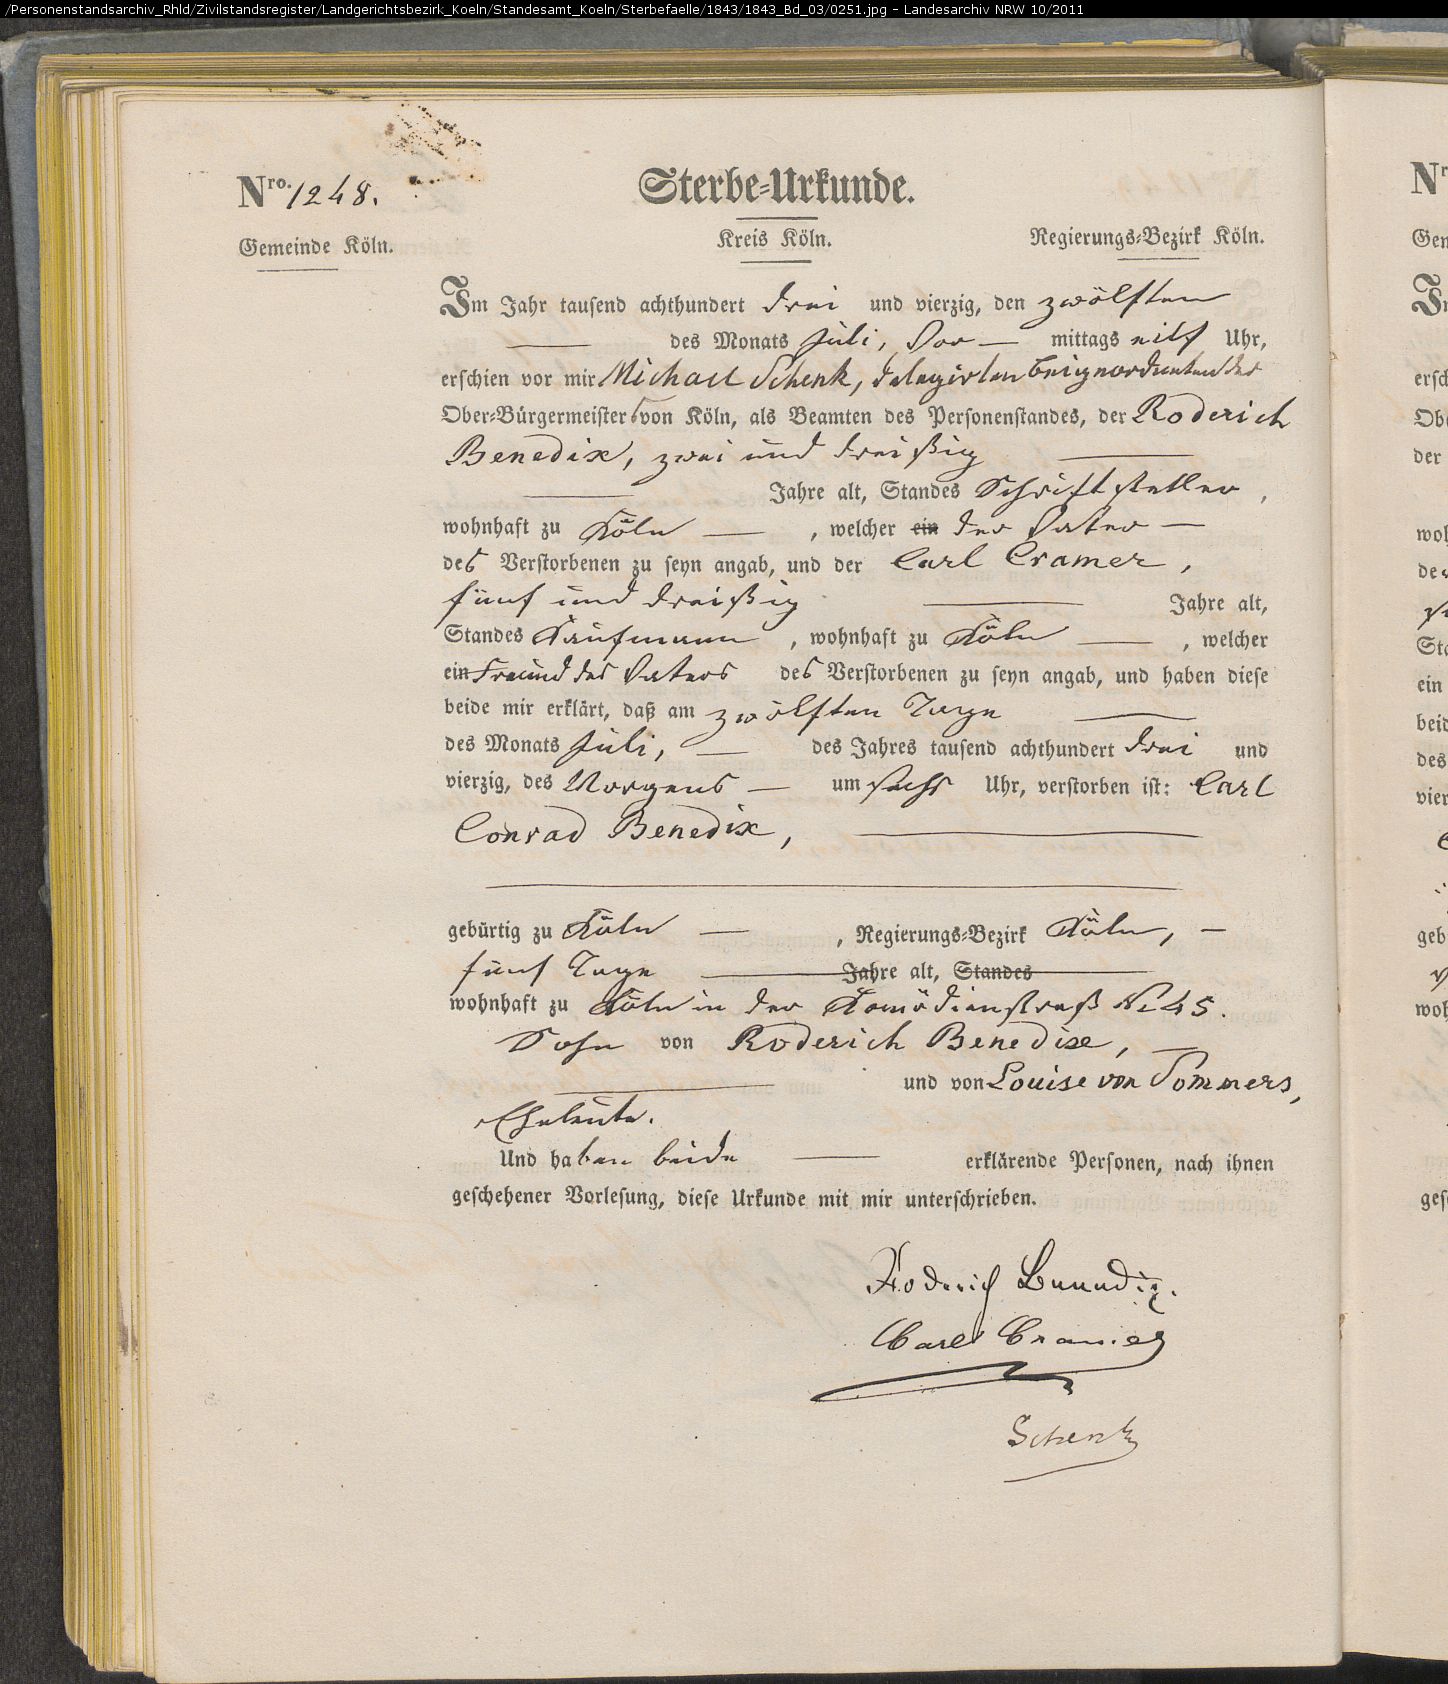 /Personenstandsarchiv_Rhld/Zivilstandsregister/Landgerichtsbezirk_Koeln/Standesamt_Koeln/Sterbefaelle/1843/1843_Bd_03/0251.jpg - Landesarchiv NRW 10/2011
Nro. 1248.
Sterbe-Urkunde.
Gemeinde Köln.
Kreis Köln.
Regierungs-Bezirk Köln.
Im Jahr tausend achthundert drei und vierzig, den zwölften
des Monats Juli, Vor — mittags eilf Uhr,
erschien vor mir Michael Schenk, delegirten Beigeordneten des
Ober-Bürgermeisters von Köln, als Beamten des Personenstandes, der Roderich
Benedix, zwei und dreißig
Jahre alt, Standes Schriftsteller,
wohnhaft zu Köln — , welcher ein der Vater —
des Verstorbenen zu seyn angab, und der Carl Cramer,
fünf und dreißig — Jahre alt,
Standes Kaufmann, wohnhaft zu Köln — , welcher
ein Freund des Vaters des Verstorbenen zu seyn angab, und haben diese
beide mir erklärt, daß am zwölften Tage —
des Monats Juli, — des Jahres tausend achthundert drei und
vierzig, des Morgens — um sechs Uhr, verstorben ist: Carl
Conrad Benedix, —
gebürtig zu Köln — , Regierungs-Bezirk Köln, —
fünf Tage — Jahre alt, Standes —
wohnhaft zu Köln in der Komödienstraß No 45.
Sohn von Roderich Benedix, —
— und von Louise von Sommers,
Eheleute.
Und haben beide — erklärende Personen, nach ihnen
geschehener Vorlesung, diese Urkunde mit mir unterschrieben.
Roderich Benedix.
Carl Cramer
Schenk
Nr
Gem
Im
ersch
Ob
der
woh
de
Sta
ein
beid
des
vier
geb
woh
gesch